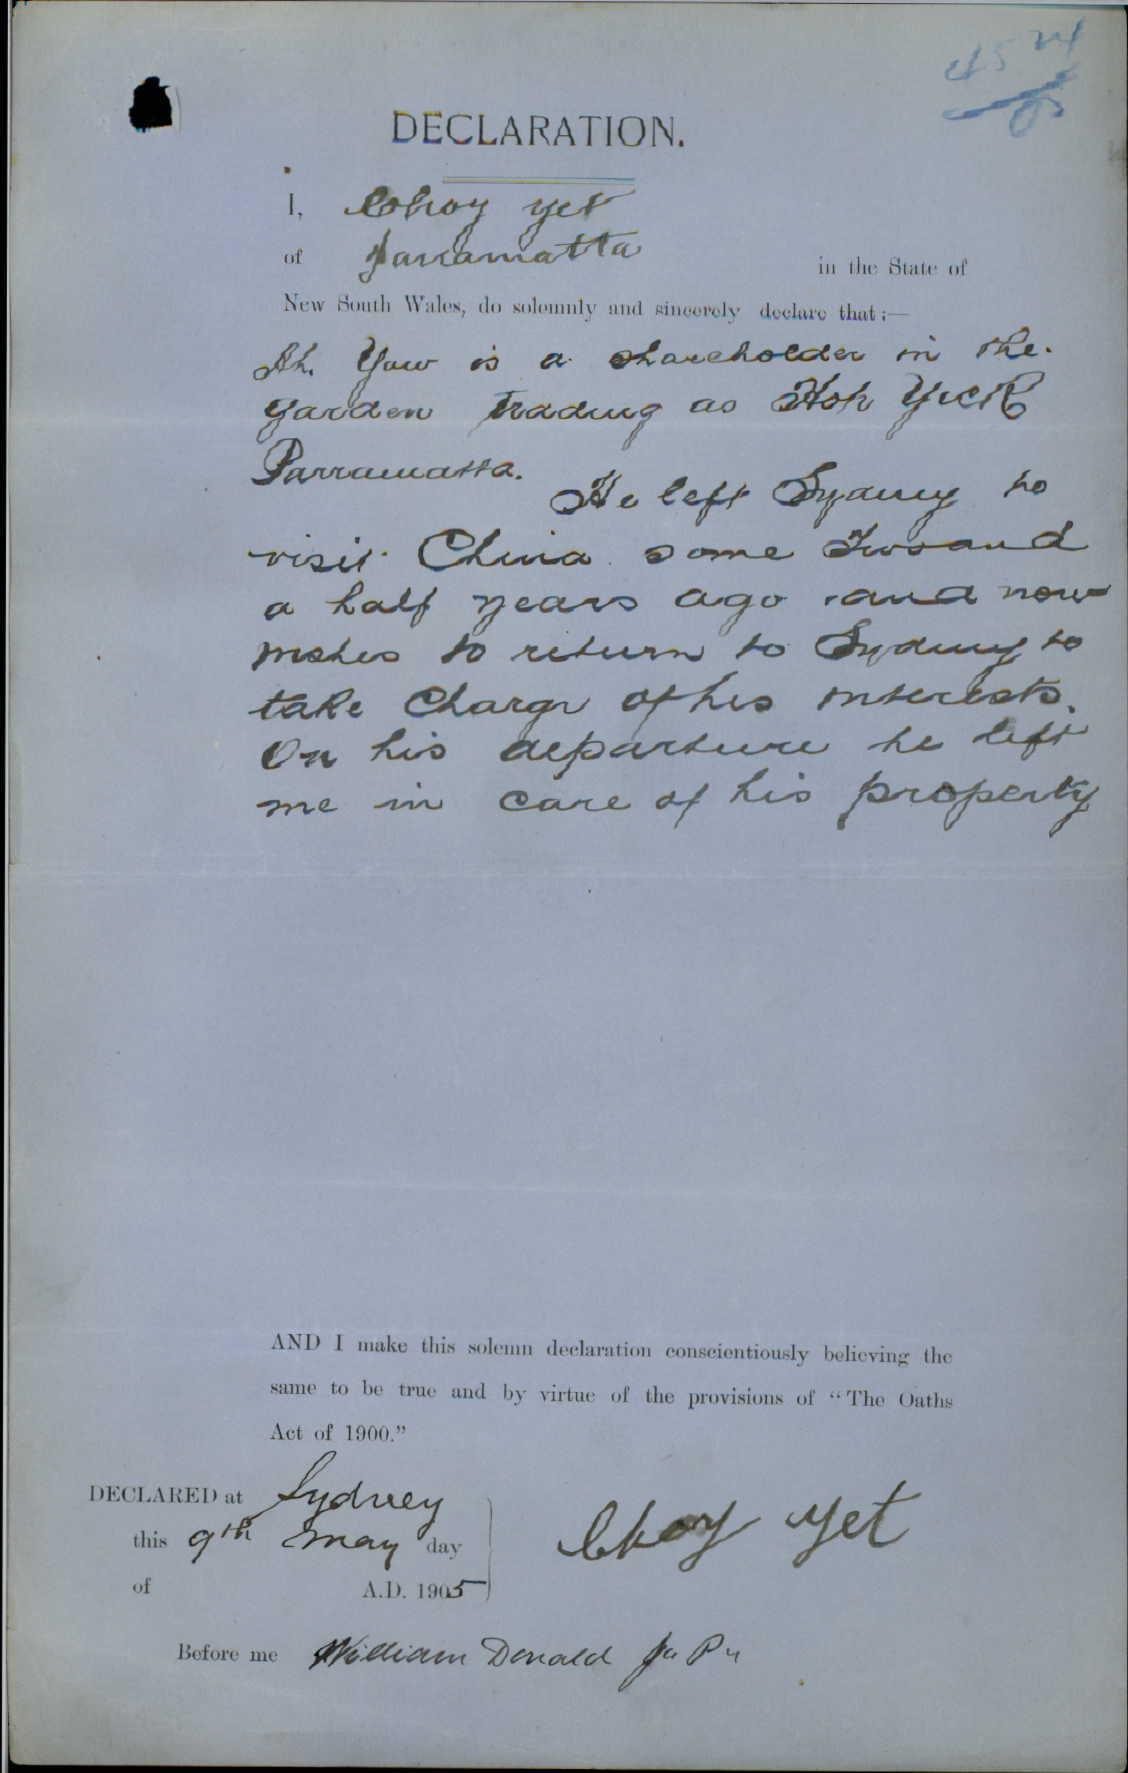 DECLARATION.
I, Choy Yet
of Parramatta in the State of
New South Wales, do solemnly and sincerely declare that:—
Ah Yow is a shareholder in the
garden trading as Hop Yick
Parramatta.
He left Sydney to
visit China some two and
a half years ago and now
wishes to return to Sydney to
take charge of his interests.
On his departure he left
me in care of his property
AND I make this solemn declaration conscientiously believing the
same to be true and by virtue of the provisions of "The Oaths
Act of 1900."
DECLARED at Sydney
this 9th May day
of A.D. 1905
Choy yet
Before me William Donald J. P.